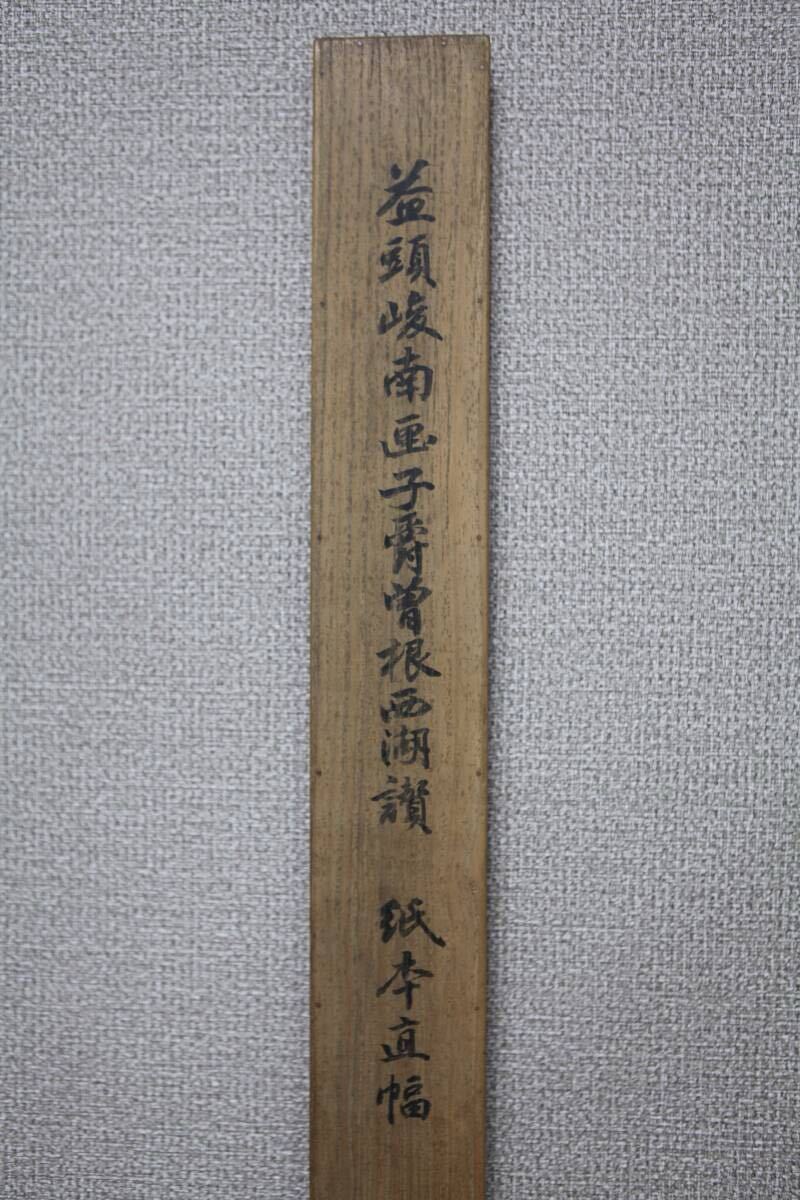 益頭峻南画子爵曽根西湖讃　紙本直幅